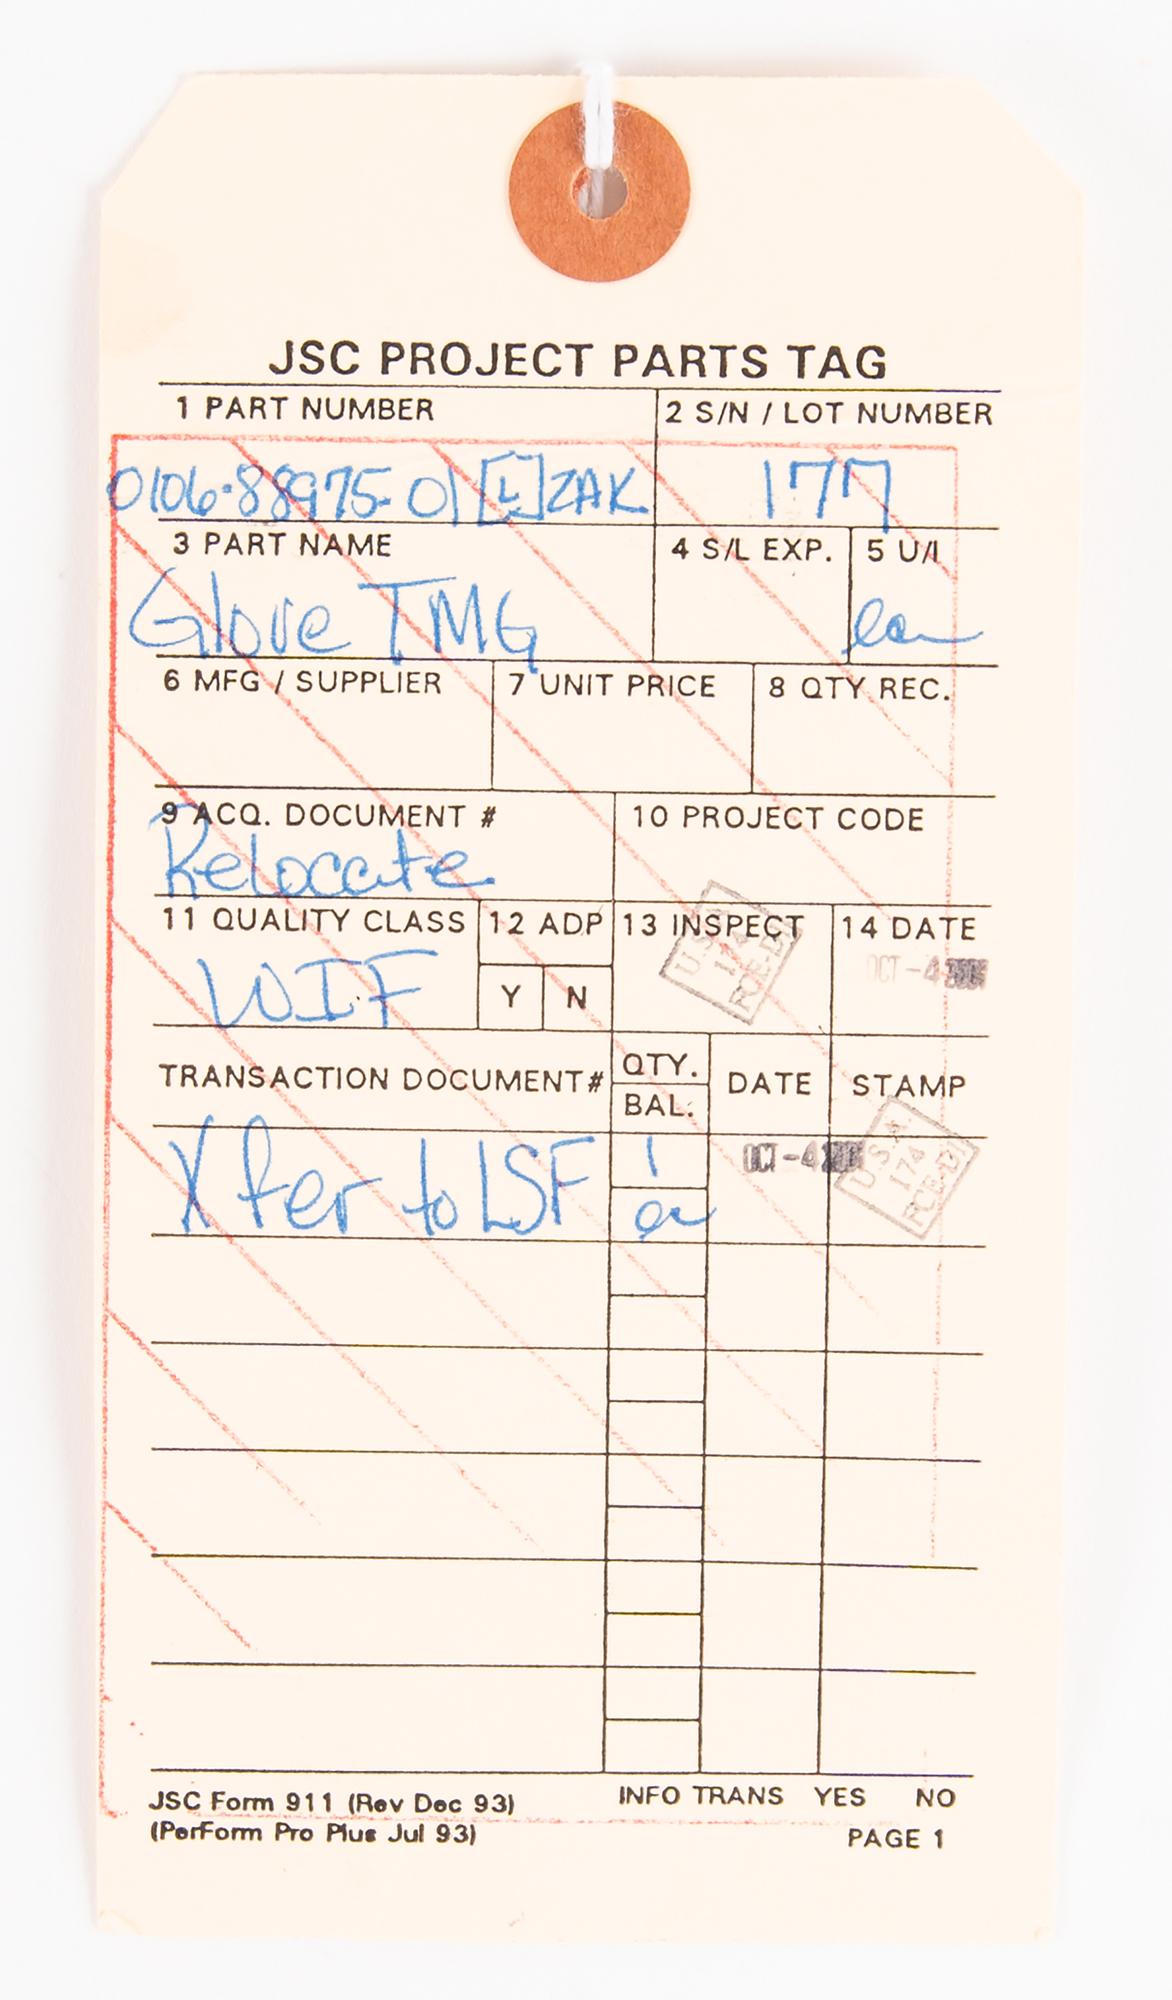 JSC PROJECT PARTS TAG
1 PART NUMBER
2 S/N / LOT NUMBER
0106-88975-01 [L] ZAK
177
3 PART NAME
4 S/L EXP.
5 U/I
Glove TMG
ea
6 MFG / SUPPLIER
7 UNIT PRICE
8 QTY REC.
9 ACQ. DOCUMENT #
10 PROJECT CODE
Relocate
11 QUALITY CLASS
12 ADP
13 INSPECT
14 DATE
WIF
Y N
U.S.A
174
PCE-DI
OCT -4
TRANSACTION DOCUMENT#
QTY.
BAL.
DATE
STAMP
X fer to LSF
1
ea
OCT -4
U.S.A
174
PCE-DI
JSC Form 911 (Rev Dec 93)
(PerForm Pro Plus Jul 93)
INFO TRANS YES NO
PAGE 1